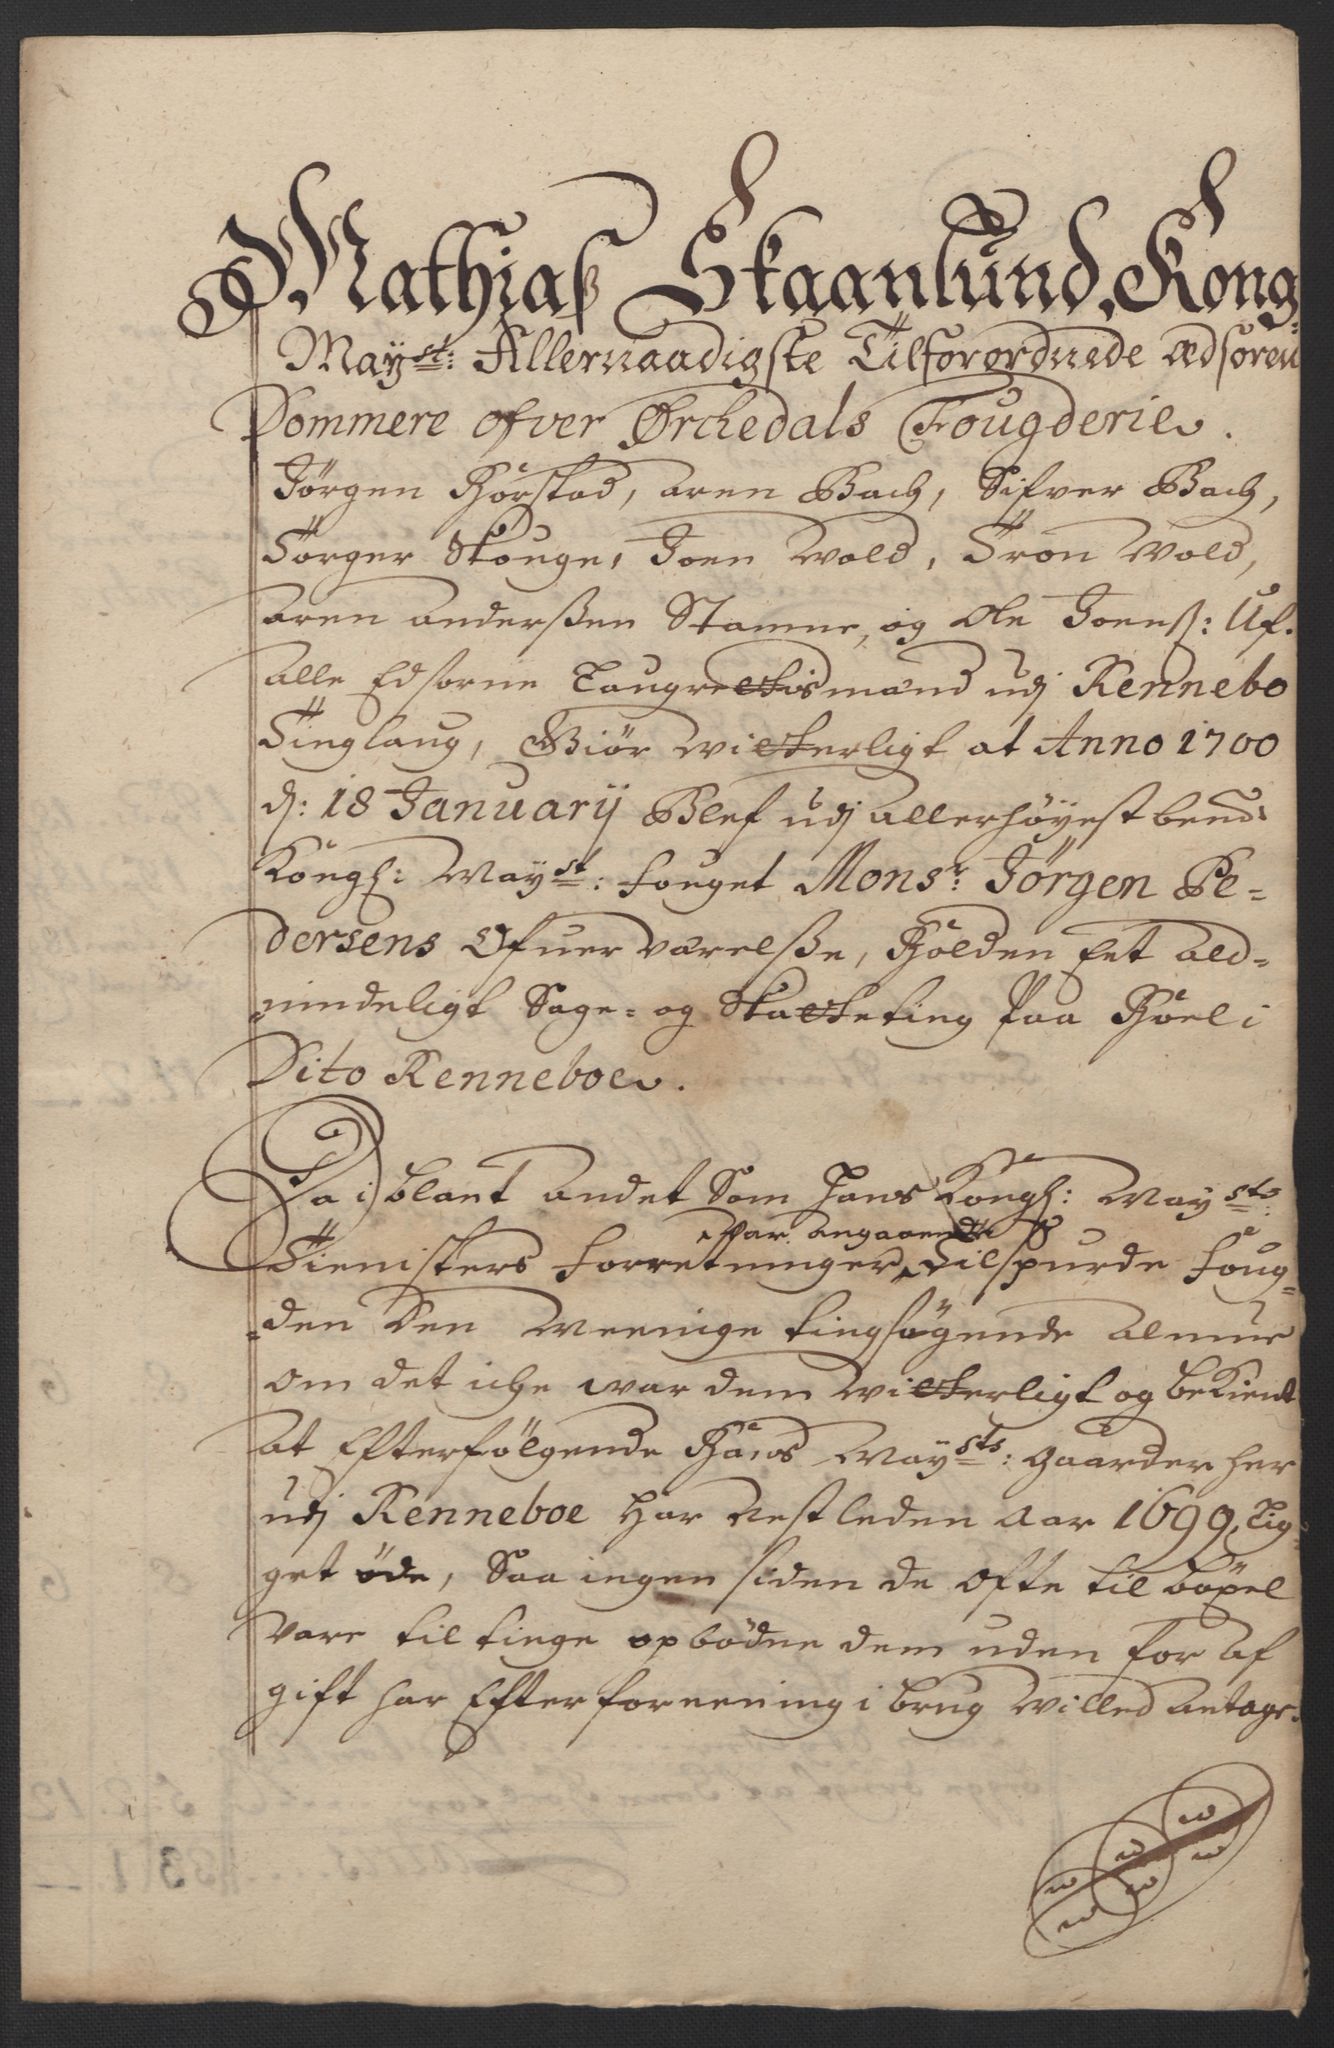 Mathiaß Skaanlund, Kong:
Mayst: Allernaadigste Tilforordnede Ædsoren
Dommere ofver Ørchedals Fougderie.
Jørgen Hørstad, Aren Bach, Sifver Bach,
Torger Skouge, Joen Wold, Tron Wold,
Aren Anderßen Stamne, og Ole Joenß: Uf.
Alle Edsorne Laugrettismænd udj Rennebo
Tinglaug, Giør Witterligt at Anno 1700
dj: 18 Januarij Blef udj Allerhøyest bend:
Kongl: Mayst: Fouget Monsr: Jørgen Pe-
dersens Ofuerværelße, Holden Eet Ald-
mindeligt Sage- og Skatteting paa Hoel i
Dito Renneboe.
Da i blant Andet Som Hans Kongl: Maysts:
Tienisters Forretninger
var angaaende
Tilspurde Foug-
den Den Meenige tingsøgende Almue
om det iche war dem Witterligt og bekiendt
At Efterfølgende Hans Maysts: gaarder her
udj Renneboe Har Nestleden Aar 1699, Lig-
get øde, Saa ingen siden de ofte til böxel
Vare til tinge opbödne dem uden for Af
gift har Efter foreening i brug Willed Antage.